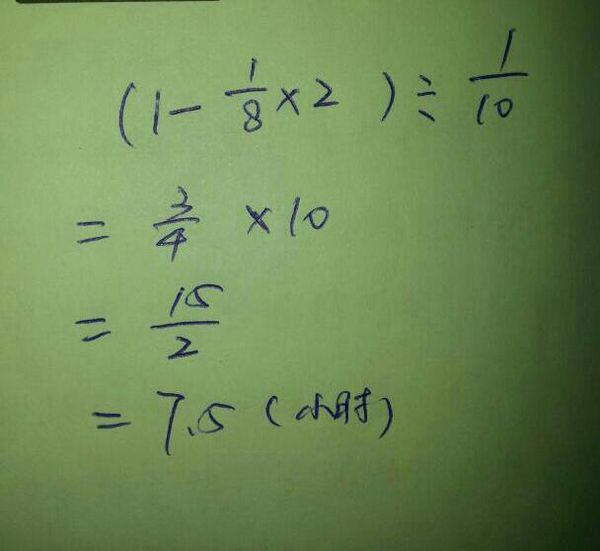 (1-1/8×2)÷1/10
=3/4×10
=15/2
=7.5(小时)